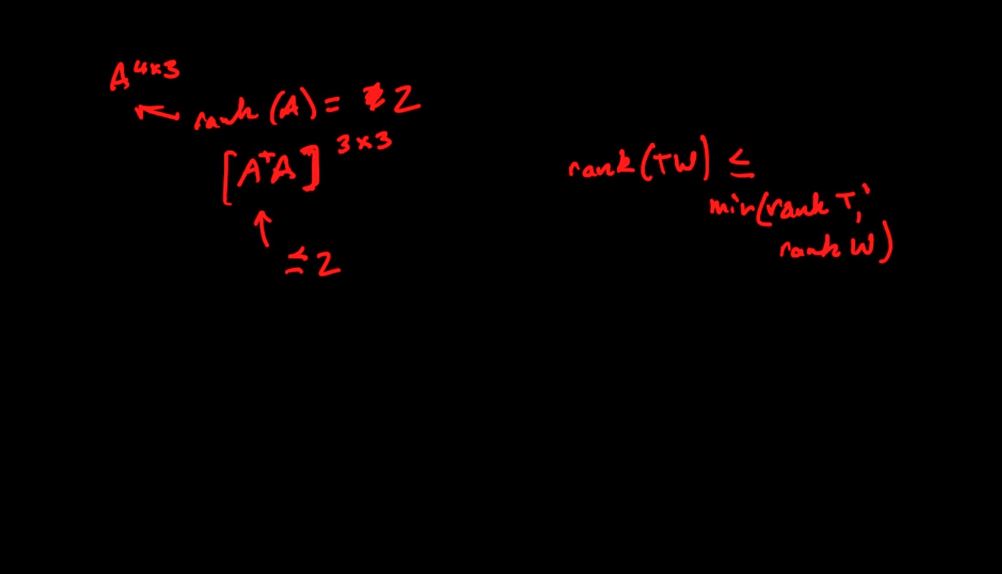 A⁴ˣ³
rank (A) = 2
[AᵀA]³ˣ³
≤ 2
rank(TW) ≤
min(rank T,
rank W)